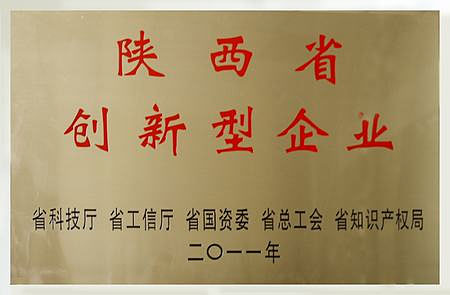 陕西省
创新型企业
省科技厅 省工信厅 省国资委 省总工会 省知识产权局
二〇一一年